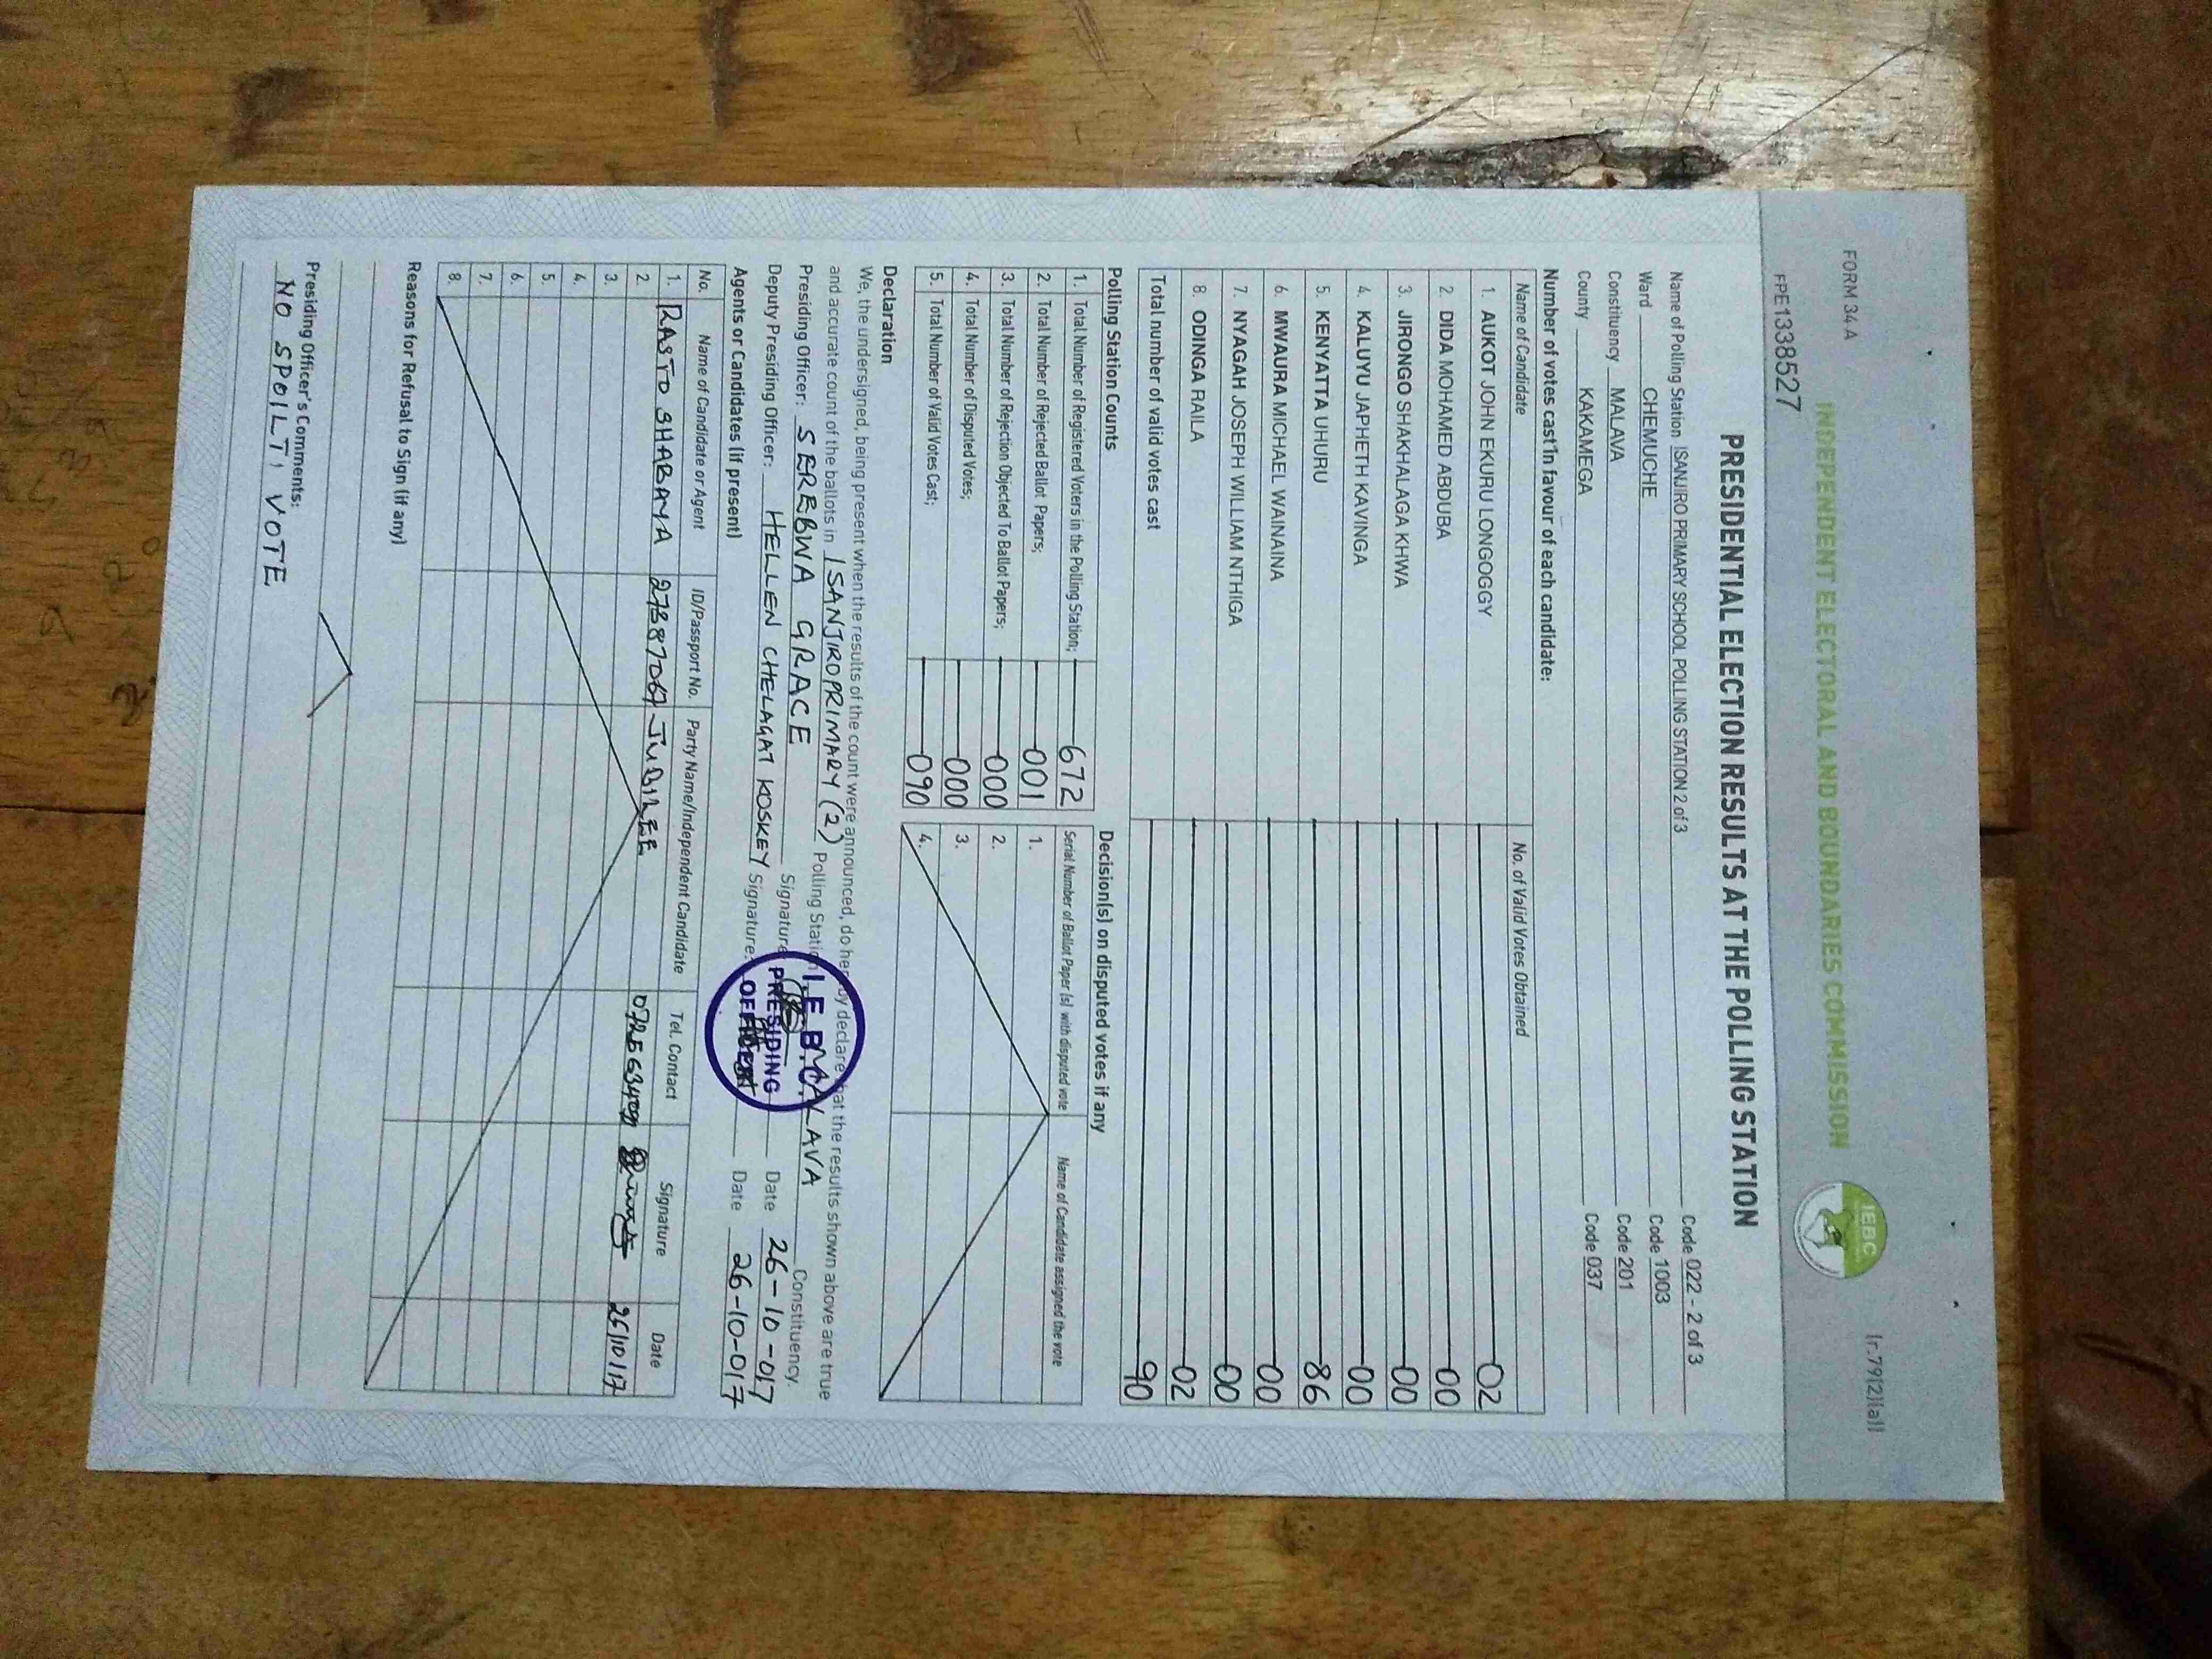 FORM 34 A
(r.79(2)(a))
INDEPENDENT ELECTORAL AND BOUNDARIES COMMISSION
IEBC
FPE1338527
PRESIDENTIAL ELECTION RESULTS AT THE POLLING STATION
Name of Polling Station ISANJIRO PRIMARY SCHOOL POLLING STATION 2 of 3 Code 022 - 2 of 3
Ward CHEMUCHE Code 1003
Constituency MALAVA Code 201
County KAKAMEGA Code 037
Number of votes cast in favour of each candidate:
Name of Candidate No. of Valid Votes Obtained
1. AUKOT JOHN EKURU LONGOGGY 02
2. DIDA MOHAMED ABDUBA 00
3. JIRONGO SHAKHALAGA KHWA 00
4. KALUYU JAPHETH KAVINGA 00
5. KENYATTA UHURU 86
6. MWAURA MICHAEL WAINAINA 00
7. NYAGAH JOSEPH WILLIAM NTHIGA 00
8. ODINGA RAILA 02
Total number of valid votes cast 90
Polling Station Counts
1. Total Number of Registered Voters in the Polling Station; 672
2. Total Number of Rejected Ballot Papers; 001
3. Total Number of Rejection Objected To Ballot Papers; 000
4. Total Number of Disputed Votes; 000
5. Total Number of Valid Votes Cast; 090
Decision(s) on disputed votes if any
Serial Number of Ballot Paper (s) with disputed vote Name of Candidate assigned the vote
1.
2.
3.
4.
Declaration
We, the undersigned, being present when the results of the count were announced, do hereby declare that the results shown above are true
and accurate count of the ballots in ISANJIRO PRIMARY (2) Polling Station MALAVA Constituency.
Presiding Officer: SEREBWA GRACE Signature Date 26-10-017
Deputy Presiding Officer: HELLEN CHELAGAT KOSKEY Signature: Date 26-10-017
I.E.B.C.
PRESIDING
OFFICER
Agents or Candidates (if present)
No. Name of Candidate or Agent ID/Passport No. Party Name/Independent Candidate Tel. Contact Signature Date
1. RASTO SHABAYA JUBILEE 26/10/17
2.
3.
4.
5.
6.
7.
8.
Reasons for Refusal to Sign (if any)
Presiding Officer's Comments:
NO SPOILT, VOTE